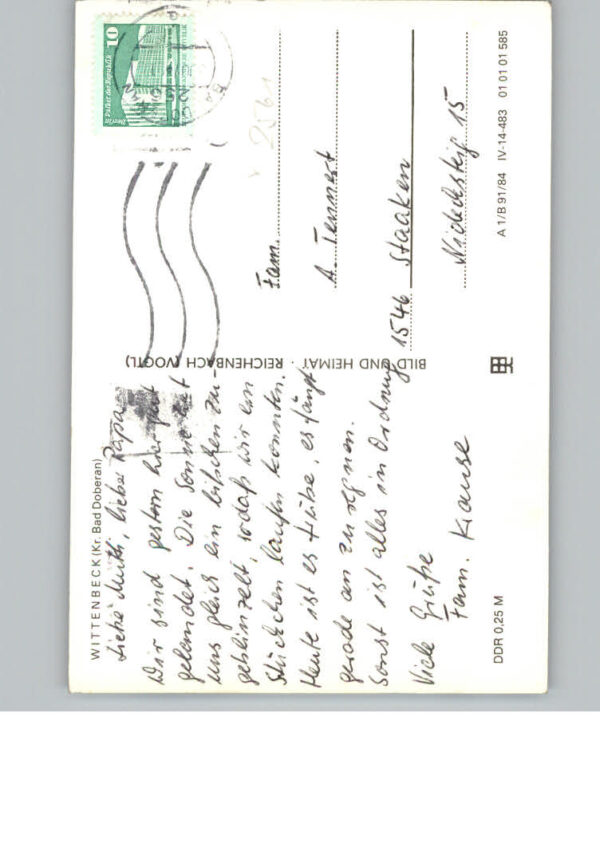 WITTENBECK (Kr. Bad Doberan)
Liebe Mutti, lieber Papa
Wir sind gestern hier gut
gelandet. Die Sonne hat
uns gleich ein bißchen zu-
geblinzelt, sodaß wir ein
Stückchen laufen konnten.
Heute ist es trübe, es fängt
gerade an zu regnen.
Sonst ist alles in Ordnung
Viele Grüße
Fam. Krause
DDR 0,25 M
BILD UND HEIMAT · REICHENBACH (VOGTL)
10
Palast der Republik
Berlin
2561
Fam.
A. Tennert
1546 Staaken
Nidecksteig 15
A 1/B 91/84 IV-14-483 01 01 01 585